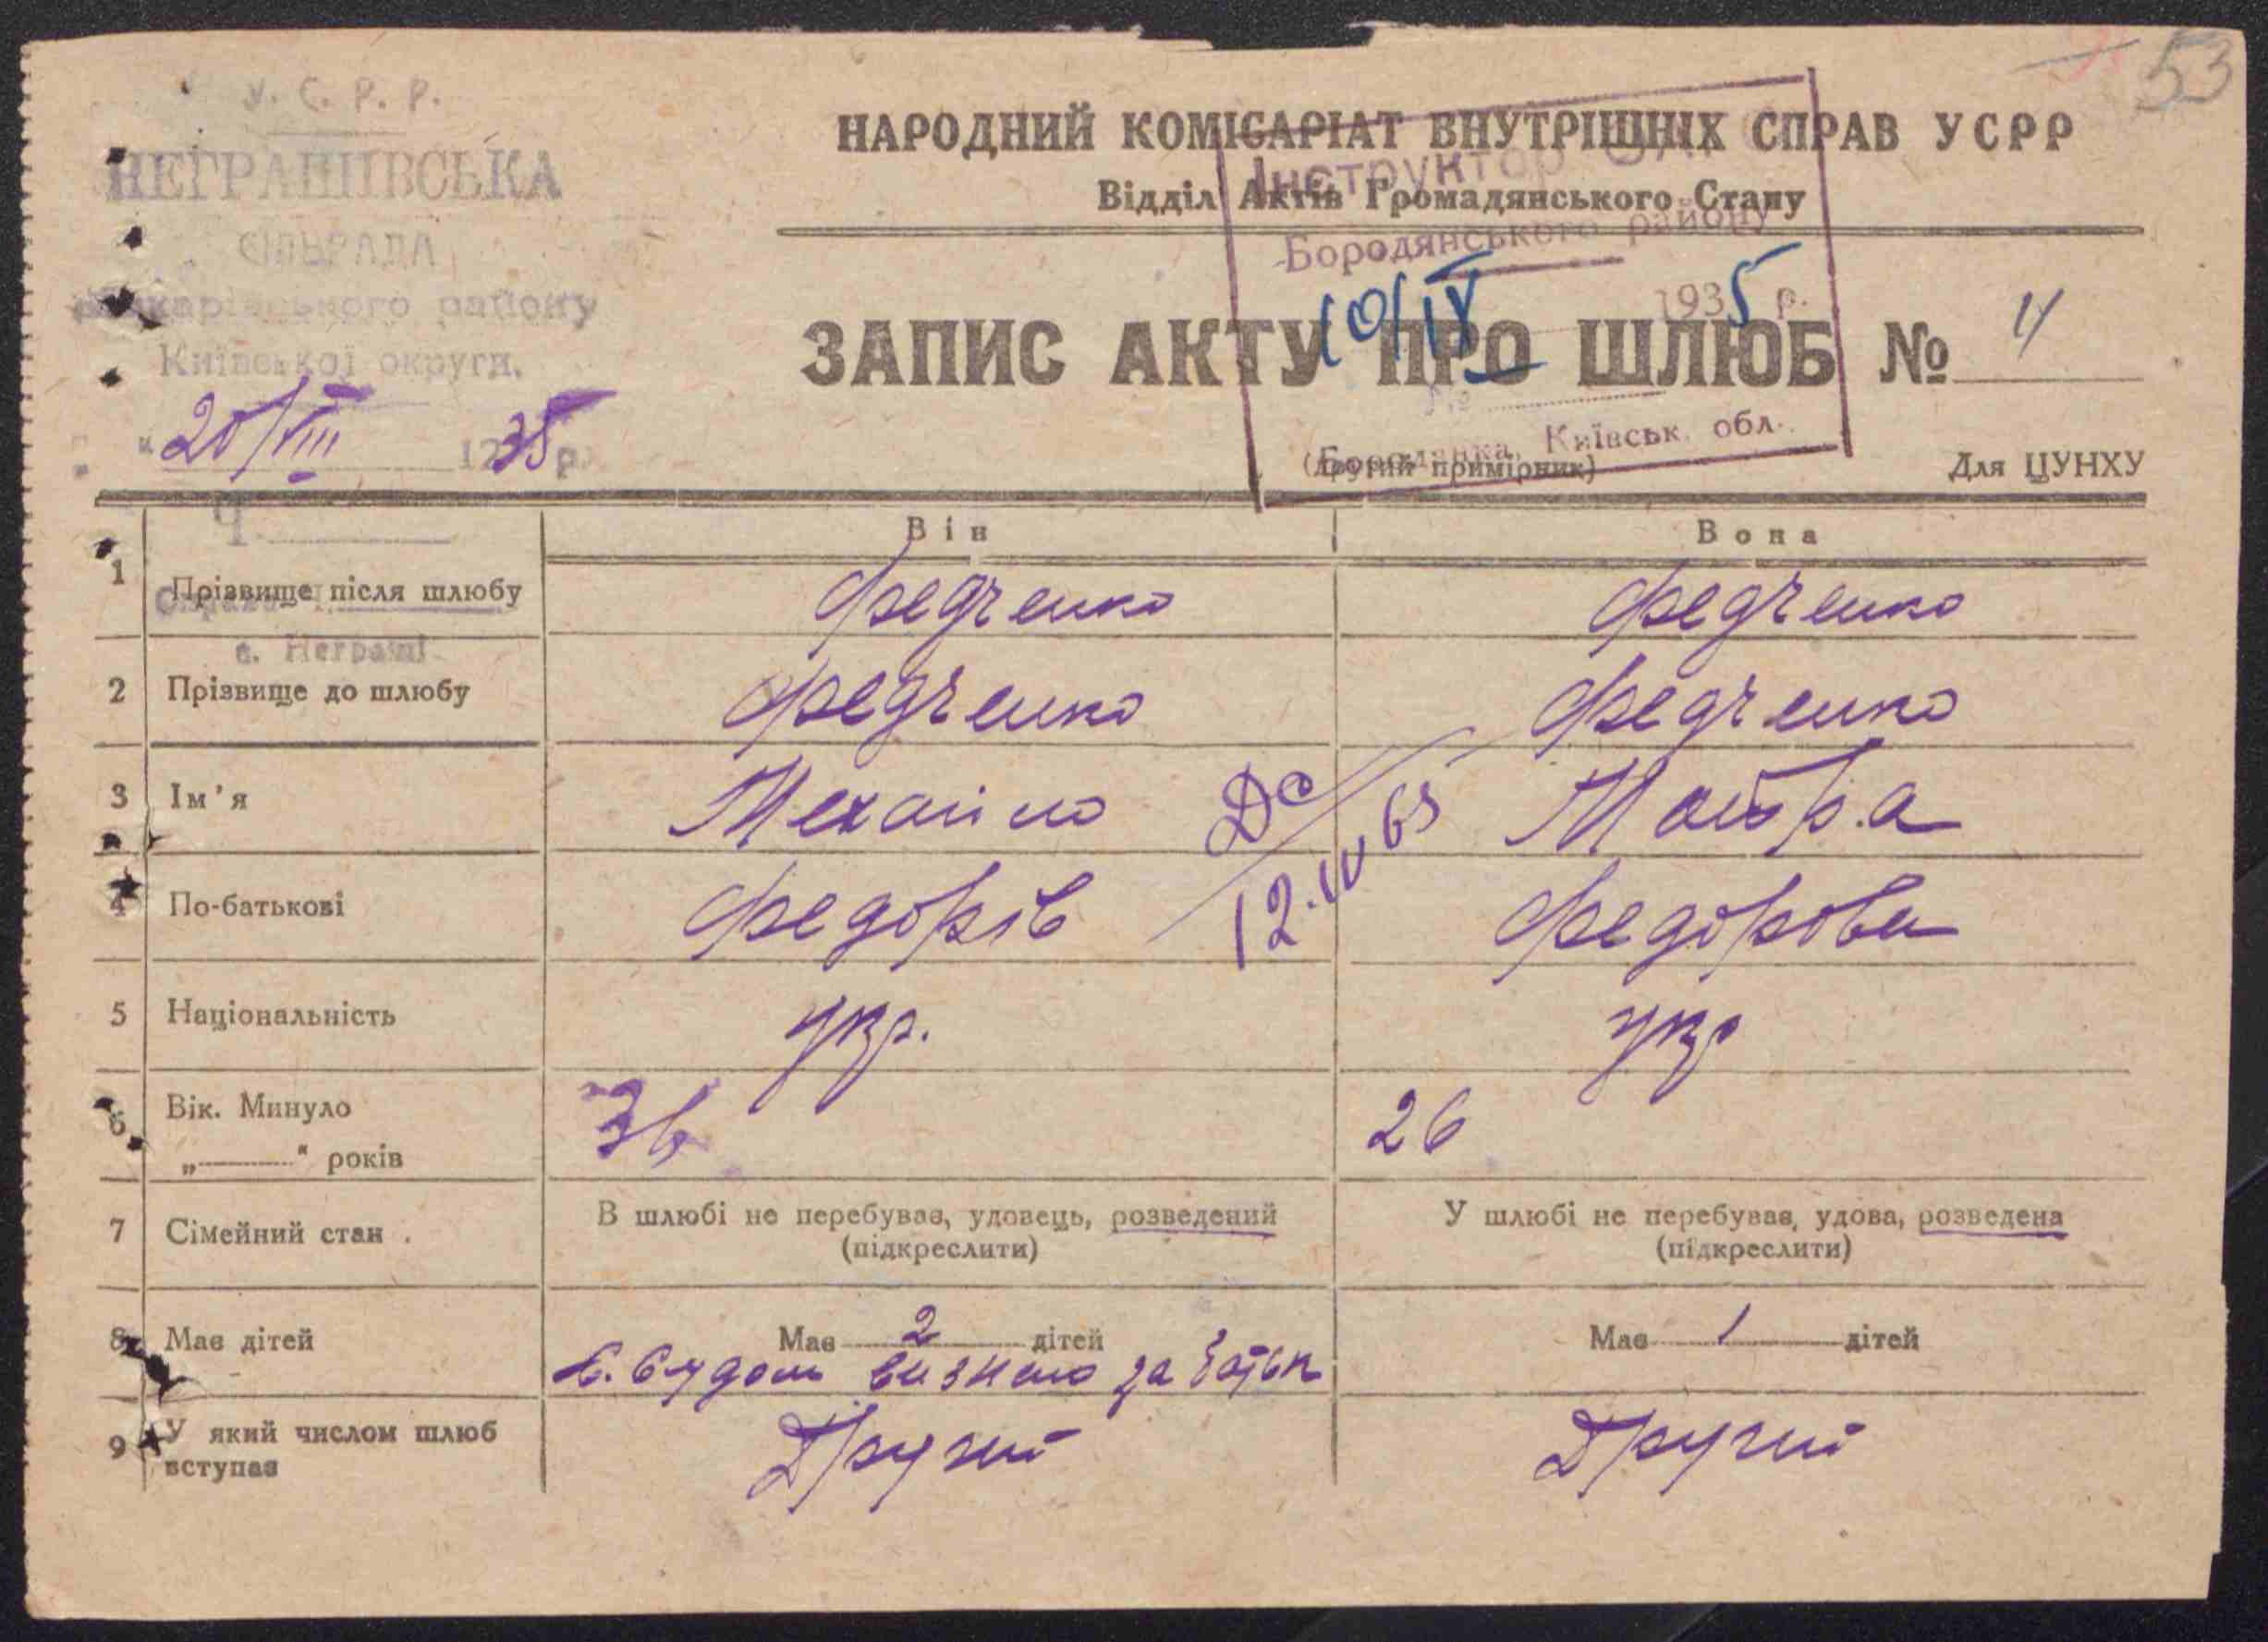 53
У. С. Р. Р.
НЕГРАШІВСЬКА
СІЛЬРАДА
району
Київської округи.
20/VIII 1935 р.
Ч
с. Неграші
НАРОДНИЙ КОМІСАРІАТ ВНУТРІШНІХ СПРАВ УСРР
Відділ Актів Громадянського Стану
Інструктор
Бородянського району
10/IX 1935 р.
ЗАПИС АКТУ ПРО ШЛЮБ № 4
№
Бородянка, Київськ. обл.
(Другий примірник)
Для ЦУНХУ
Він Вона
1 Прізвище після шлюбу Федченко Федченко
2 Прізвище до шлюбу Федченко Федченко
3 Ім'я Мехайло
4 По-батькові Федорів Федорова
12.IV 65
5 Національність укр. укр
6 Вік. Минуло 26
„——“ років
7 Сімейний стан . В шлюбі не перебував, удовець, розведений У шлюбі не перебував, удова, розведена
(підкреслити) (підкреслити)
8 Має дітей Має 2 дітей Має 1 дітей
визнано за
9 У який числом шлюб Другий Другий
вступає